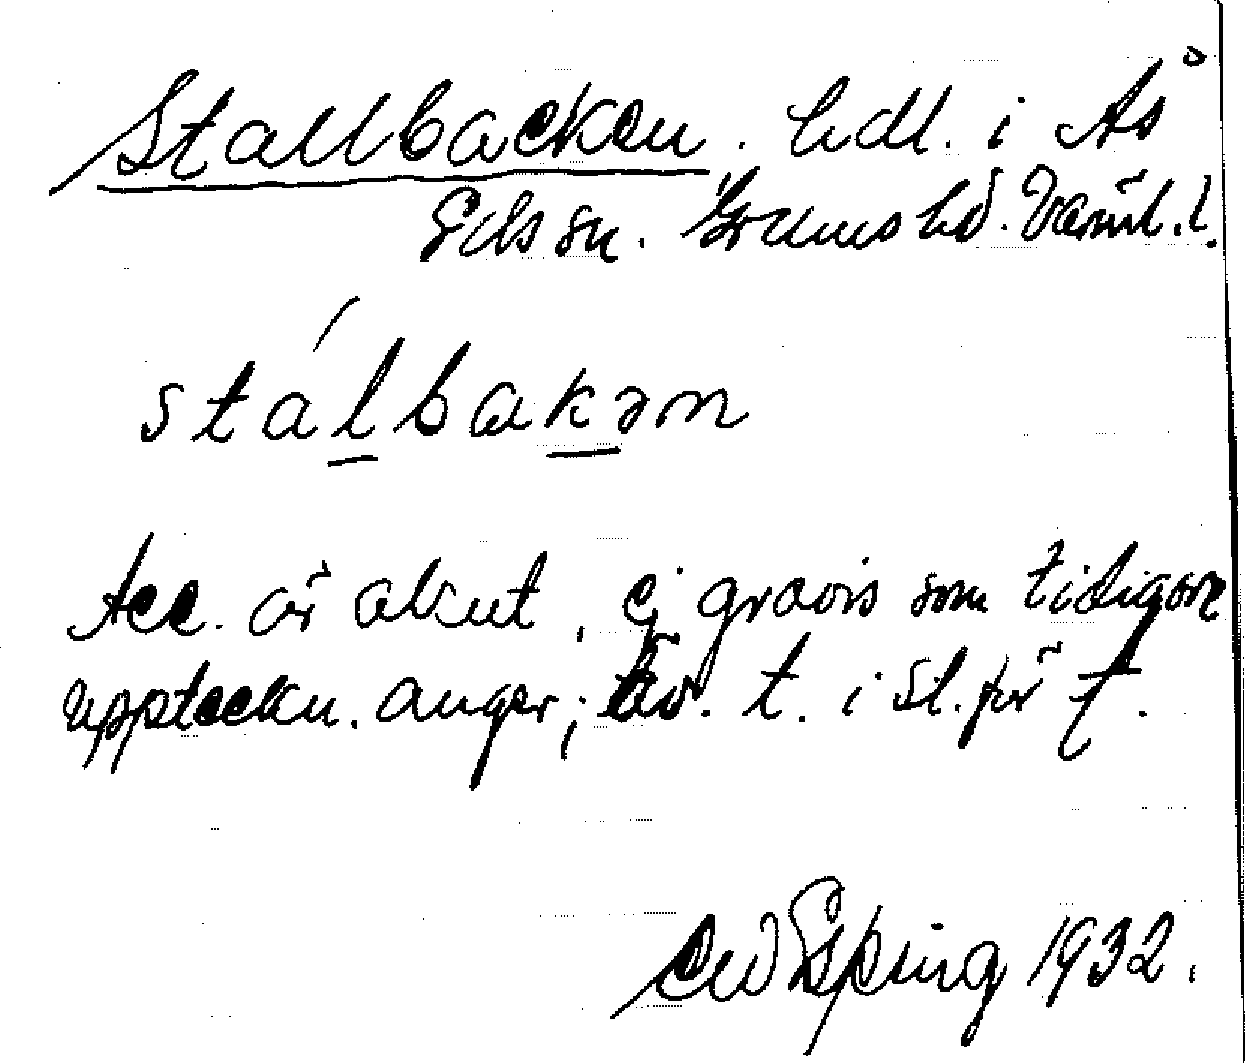 Stallbacken. hdl. i Ås
Eds sn. Grums hd. Värml. l.
stálbakən
Acc. är akut, ej gravis som tidigare
uppteckn. anger; äv. t. i st. för
Spring 1932.